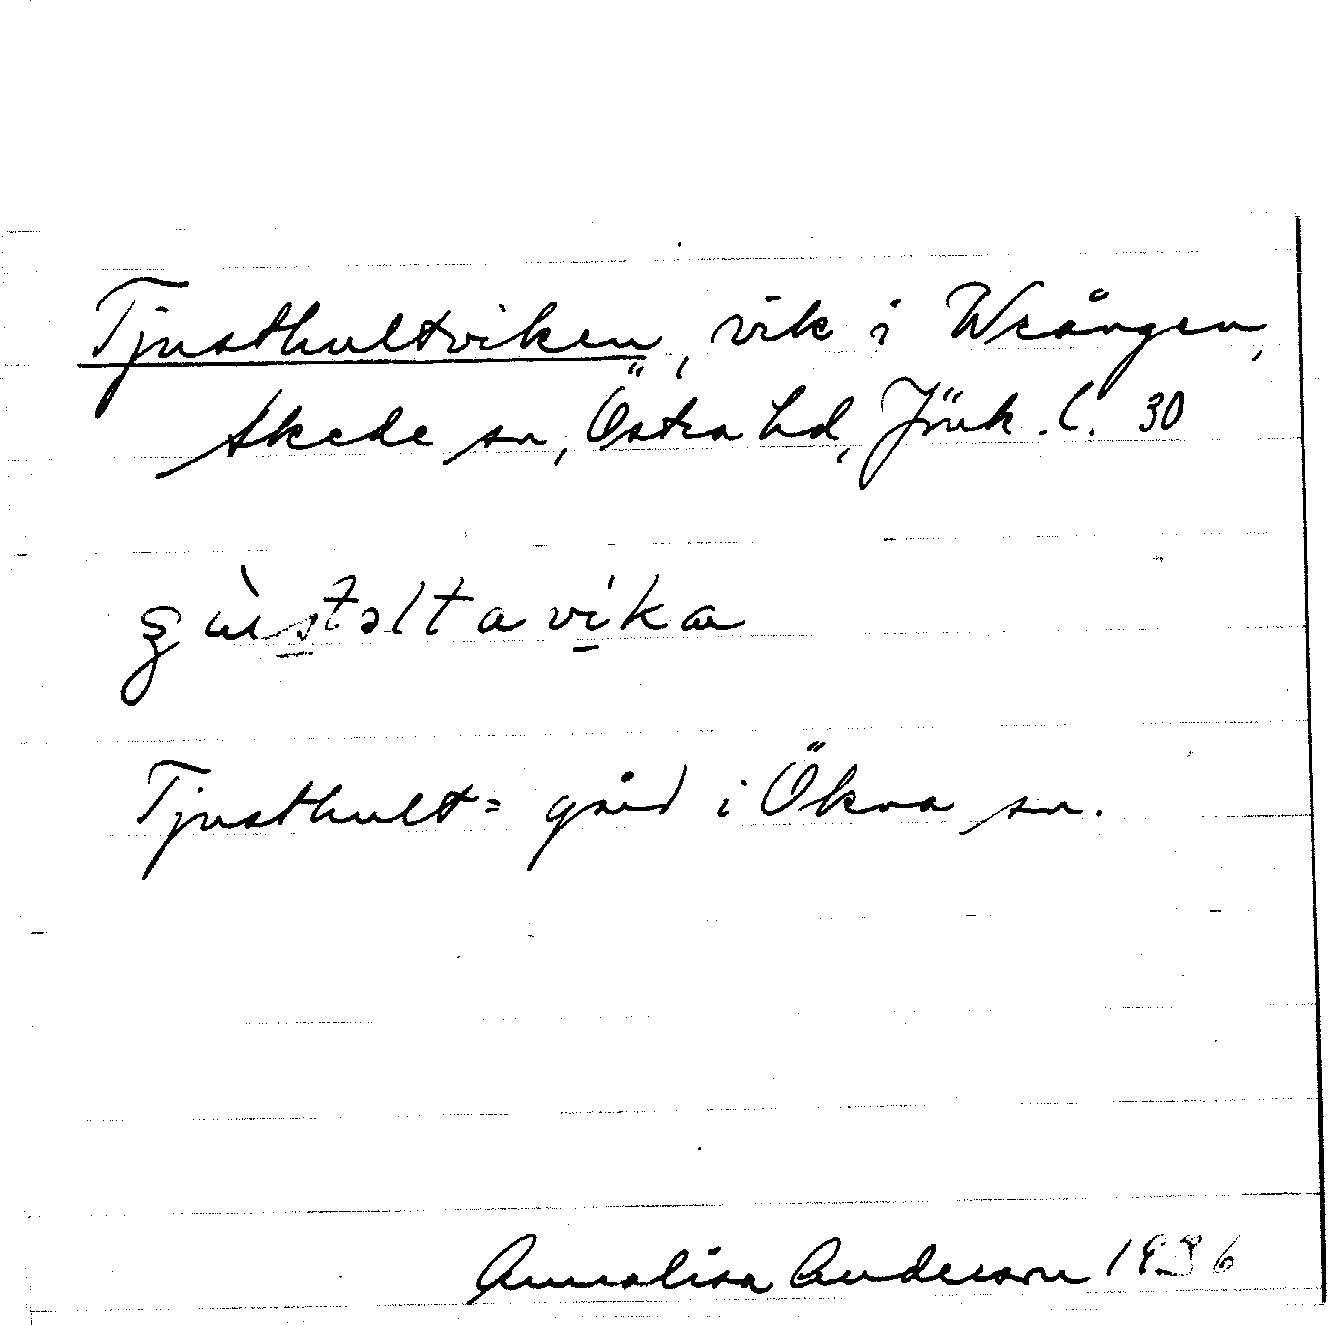 Tjusthultviken, vik i Wrången,
Skede sn, Östra hd, Jönk. l. 30
Tjusthult = gård i Ökna sn.
Annalisa Anderson 1936